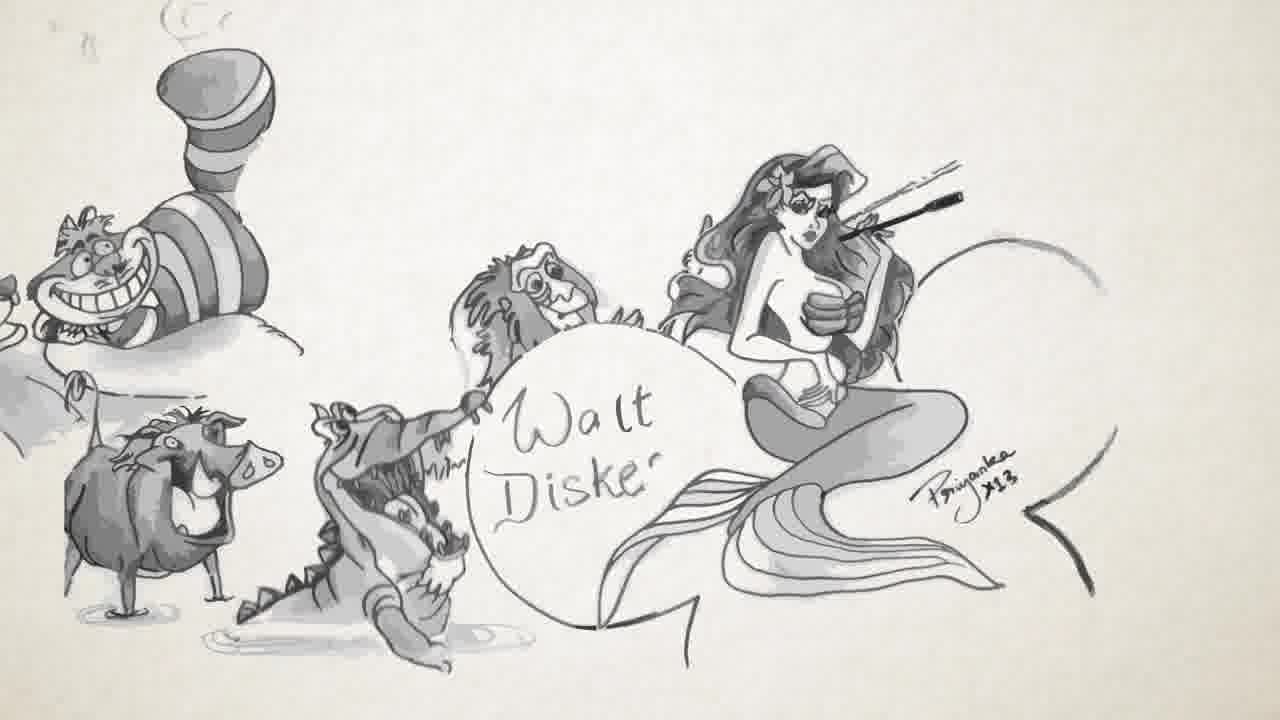 Walt
Diske
Priyanka
x13